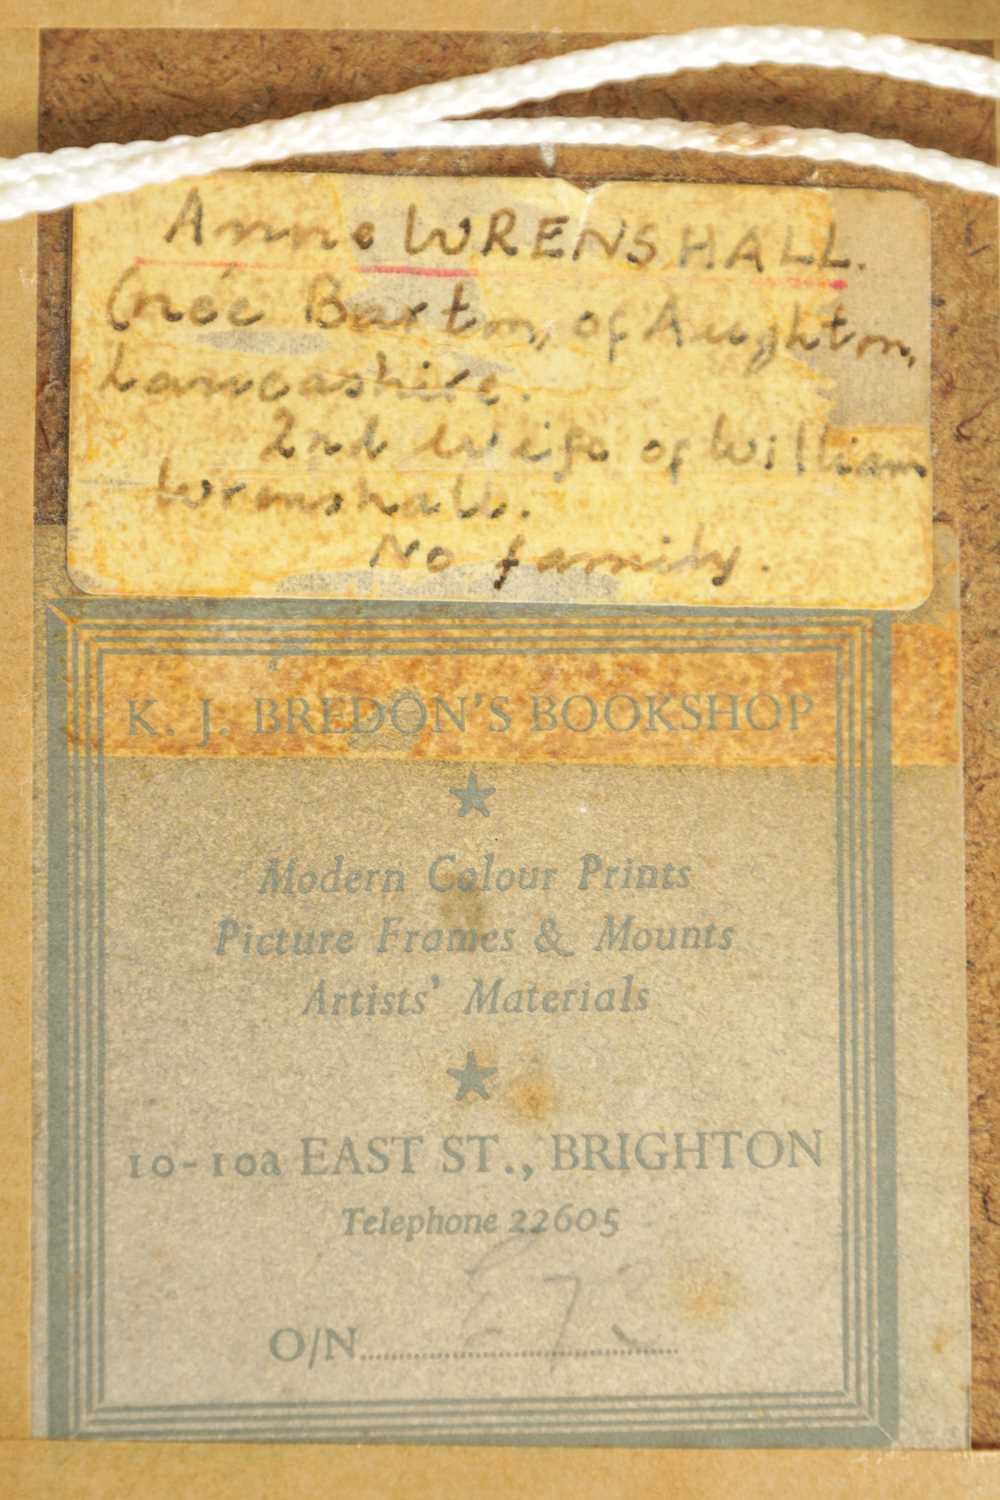 Anne WRENSHALL.
(née Barton, of Aughton,
Lancashire.
2nd wife of William
Wrenshall.
No family.
K. J. BREDON'S BOOKSHOP
Modern Colour Prints
Picture Frames & Mounts
Artists' Materials
10-10a EAST ST., BRIGHTON
Telephone 22605
O/N